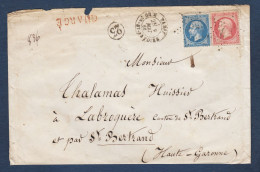 CHARGÉ
Monsieur
Chalamas Huissier
à Labroquère canton de St Bertrand
et par St Bertrand
(Haute-Garonne)